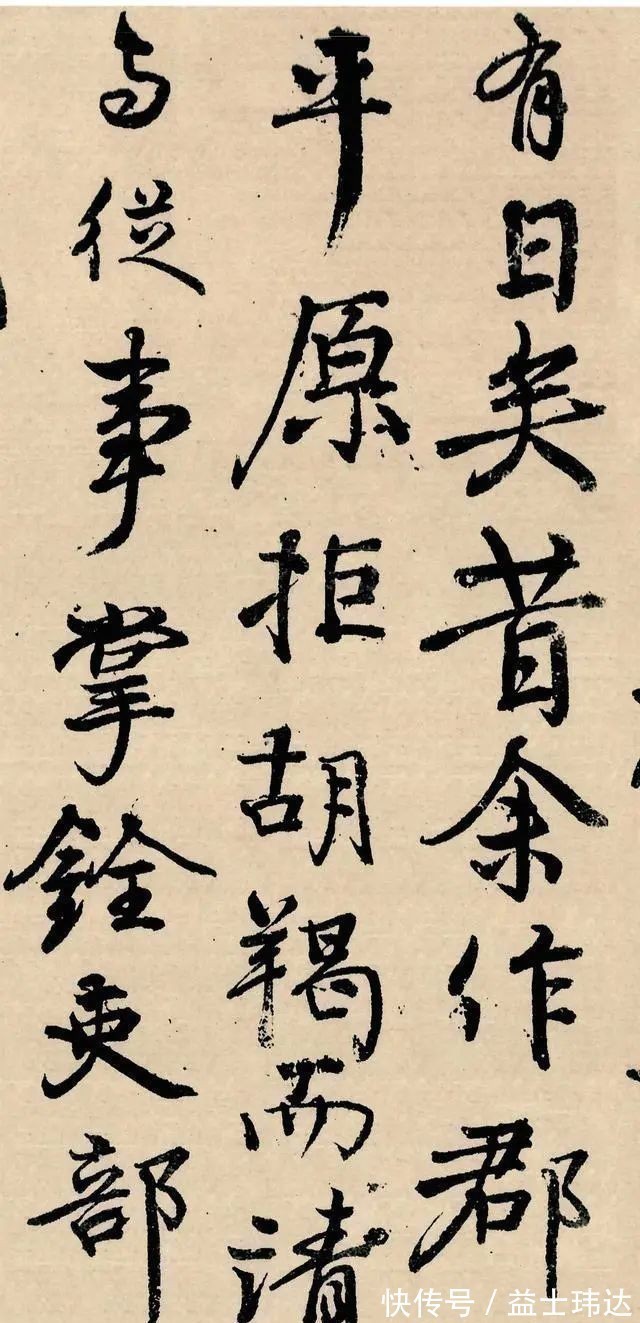 有日矣昔余作郡
平原拒胡羯而请
与从事掌铨吏部
快传号 / 益士玮达